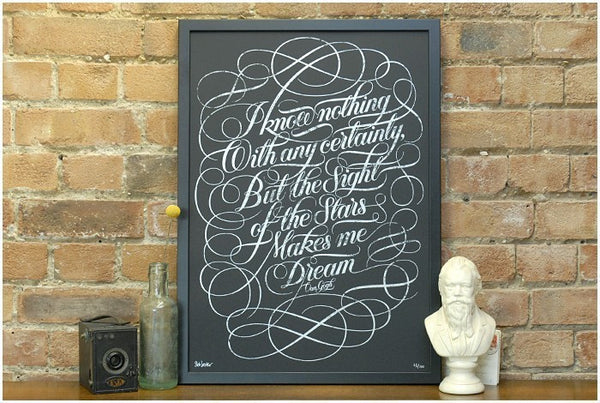 I know nothing
With any certainty,
But the Sight
of the Stars
Makes me
Dream
Van Gogh